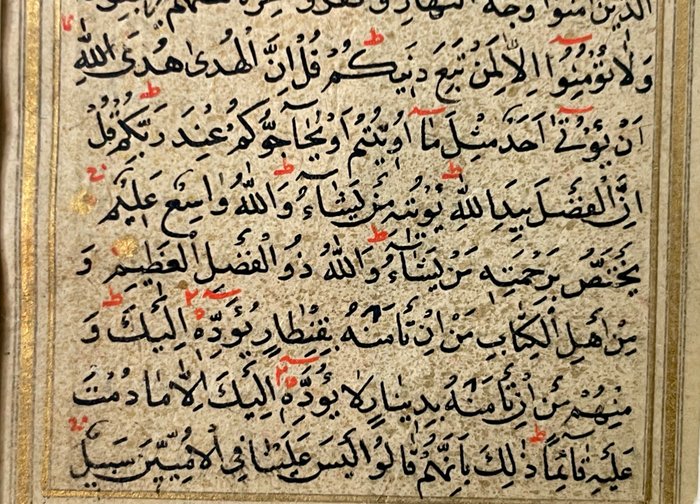 الَّذِينَ آمَنُوا وَجْهَ النَّهَارِ وَاكْفُرُوا
وَلَا تُؤْمِنُوا إِلَّا لِمَنْ تَبِعَ دِينَكُمْ قُلْ إِنَّ الْهُدَىٰ هُدَى اللَّهِ
أَنْ يُؤْتَىٰ أَحَدٌ مِثْلَ مَا أُوتِيتُمْ أَوْ يُحَاجُّوكُمْ عِنْدَ رَبِّكُمْ قُلْ
إِنَّ الْفَضْلَ بِيَدِ اللَّهِ يُؤْتِيهِ مَنْ يَشَاءُ وَاللَّهُ وَاسِعٌ عَلِيمٌ
يَخْتَصُّ بِرَحْمَتِهِ مَنْ يَشَاءُ وَاللَّهُ ذُو الْفَضْلِ الْعَظِيمِ وَ
مِنْ أَهْلِ الْكِتَابِ مَنْ إِنْ تَأْمَنْهُ بِقِنْطَارٍ يُؤَدِّهِ إِلَيْكَ وَ
مِنْهُمْ مَنْ إِنْ تَأْمَنْهُ بِدِينَارٍ لَا يُؤَدِّهِ إِلَيْكَ إِلَّا مَا دُمْتَ
عَلَيْهِ قَائِمًا ذَٰلِكَ بِأَنَّهُمْ قَالُوا لَيْسَ عَلَيْنَا فِي الْأُمِّيِّينَ سَبِيلٌ